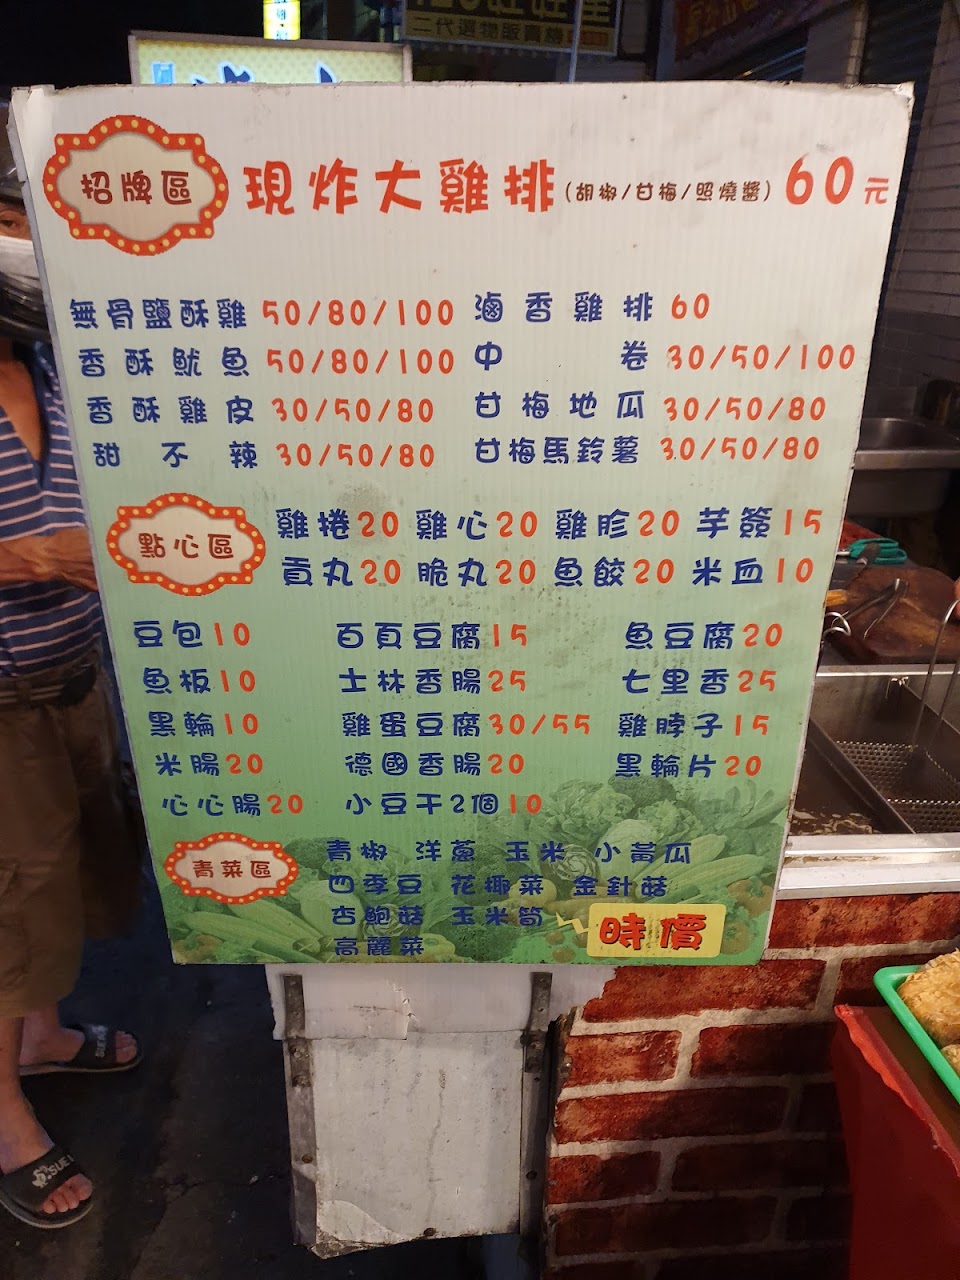 二代選物販賣機
招牌區 現炸大雞排(胡椒/甘梅/照燒醬) 60元
無骨鹽酥雞 50/80/100 滷香雞排 60
香酥魷魚 50/80/100 中卷 30/50/100
香酥雞皮 30/50/80 甘梅地瓜 30/50/80
甜不辣 30/50/80 甘梅馬鈴薯 30/50/80
點心區
雞捲20 雞心20 雞胗20 芋簽15
貢丸20 脆丸20 魚餃20 米血10
豆包10 百頁豆腐15 魚豆腐20
魚板10 士林香腸25 七里香25
黑輪10 雞蛋豆腐30/55 雞脖子15
米腸20 德國香腸20 黑輪片20
心心腸20 小豆干2個10
青菜區
青椒 洋蔥 玉米 小黃瓜
四季豆 花椰菜 金針菇
杏鮑菇 玉米筍 時價
高麗菜